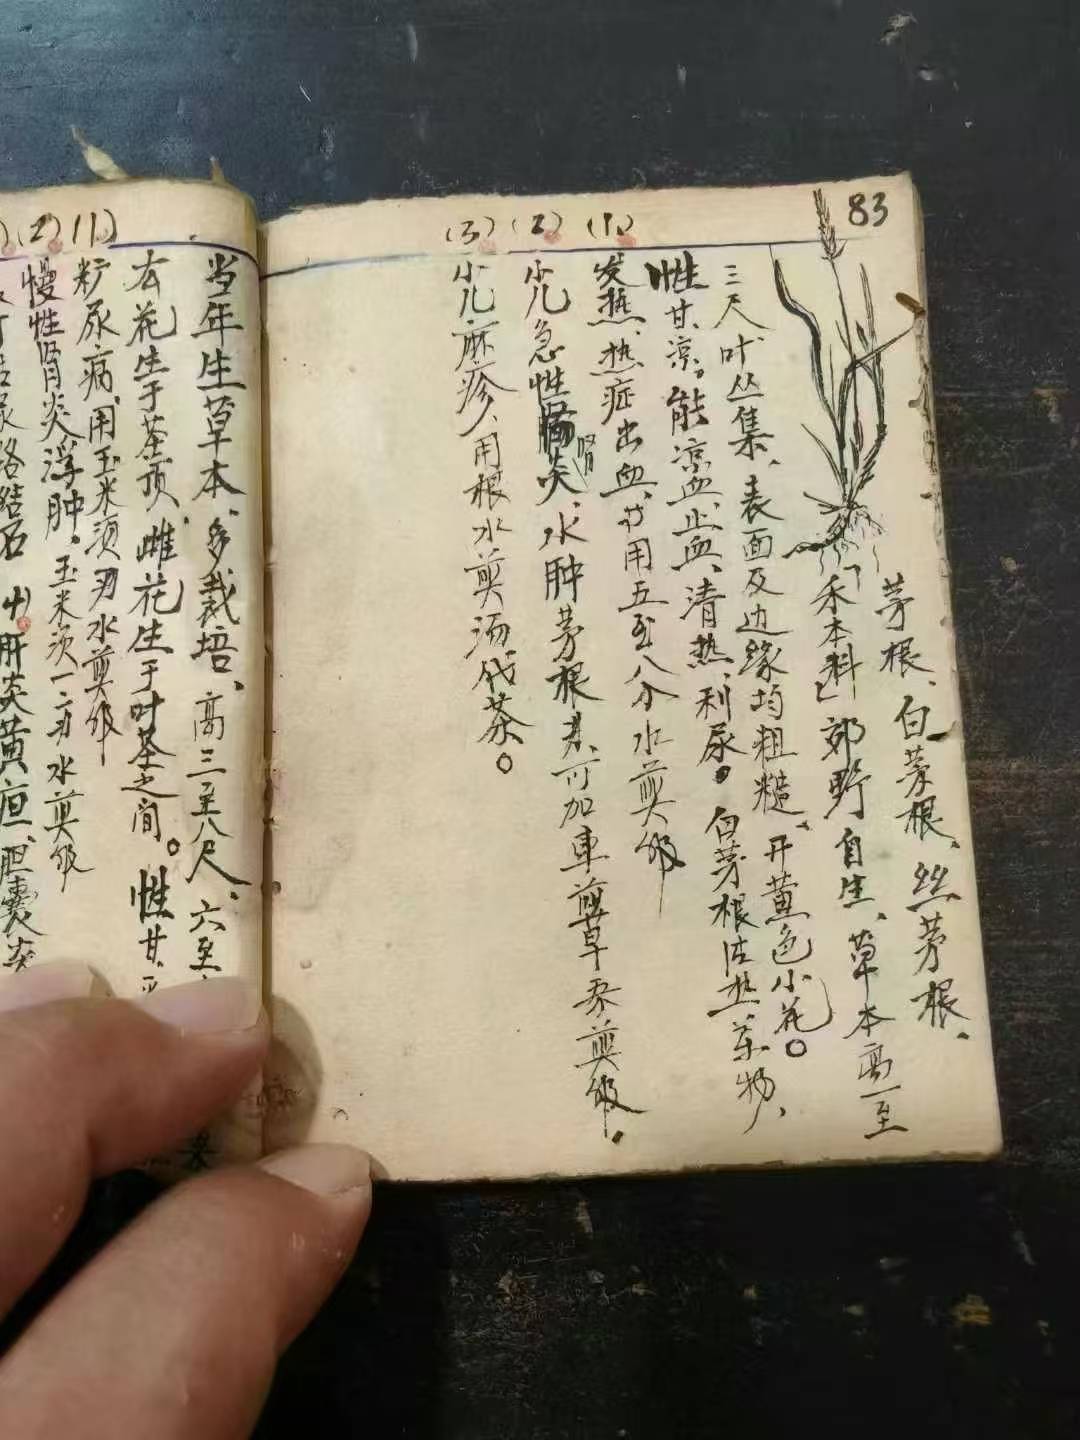 83
茅根、白茅根、丝茅根、
「禾本料」郊野自生、草本高一至
三尺叶丛集、表面及边缘均粗糙、开黄色小花。
性甘、凉。能凉血、止血、清热、利尿。白茅根法热药物、
(1)、发热、热症出血、廿用五至八分水煎服
(2) 小儿急性肾炎、水肿茅根，可加車前草水煎服。
(3) 小儿麻疹、用根水煎汤代茶。
当年生草本、多栽培、高三至八尺、六至
右花生于茎顶、雌花生于叶茎之间。性甘、平
(1) 尿病、用玉米须 水煎服
(2) 慢性肾炎浮肿。玉米须一 水煎服
结石 肝炎黄疸、胆囊炎